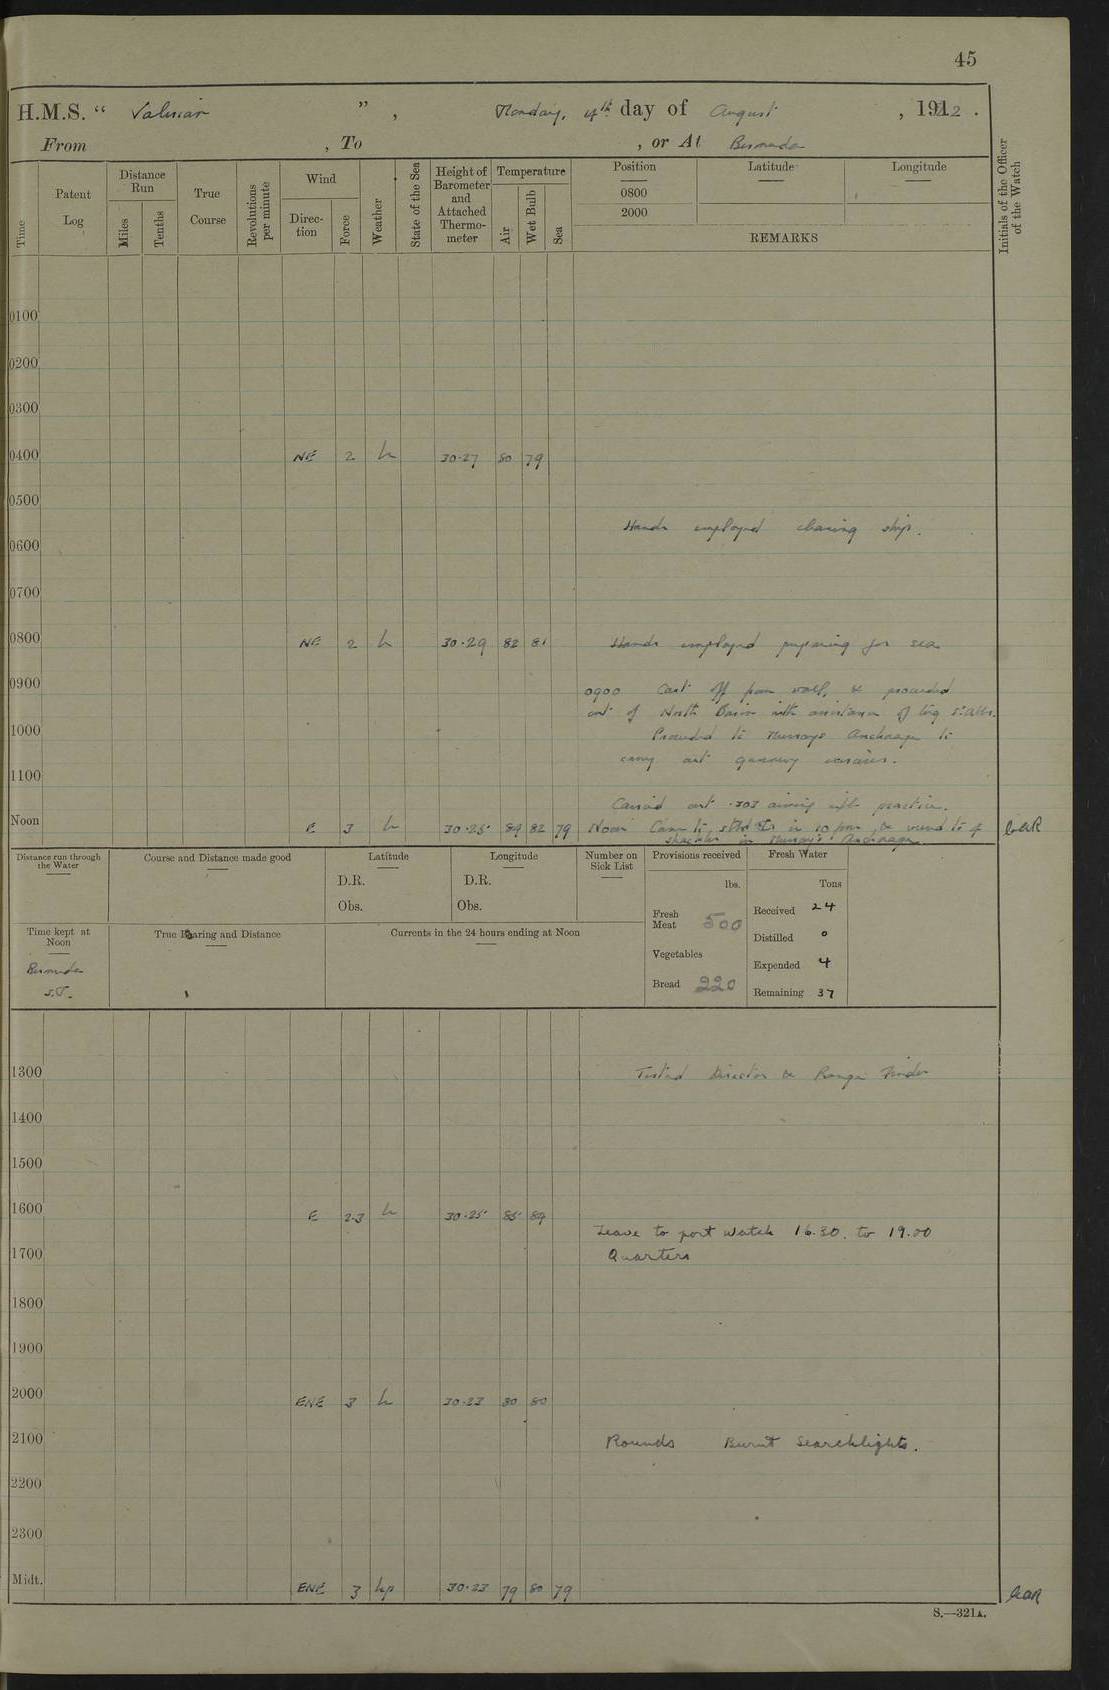 45
H.M.S. " Valerian ", Monday, day of August, 1922.
From , To , or At Bermuda
Time
Patent Log
Distance Run
Miles
Tenths
True Course
Revolutions per minute
Wind
Direc-tion
Force
Weather
State of the Sea
Height of Barometer and Attached Thermo-meter
Temperature
Air
Wet Bulb
Sea
Position
0800
2000
Latitude
Longitude
REMARKS
Initials of the Officer of the Watch
0100
0200
0300
0400 NE 2 30.27 80 79
0500
Hands employed cleaning ship.
0600
0700
0800 NE 2 30.29 82 81 Hands employed preparing for sea
0900
0900 Cast off from wall, & proceeded
out of North Basin with assistance of tug
1000
Proceeded to Murrays Anchorage to
carry out gunnery exercises.
1100
Carried out .303 aiming rifle practice.
Noon E 3 30.25 82 79 Noon Came to in 10 fm & veered to 4
shackles in Murray's Anchorage
Distance run through the Water
Course and Distance made good
Latitude
D.R.
Obs.
Longitude
D.R.
Obs.
Number on Sick List
Provisions received
lbs.
Fresh Meat 500
Vegetables
Bread 220
Fresh Water
Tons
Received 24
Distilled 0
Expended 4
Remaining 37
Time kept at Noon
Bermuda
S.T.
True Bearing and Distance
Currents in the 24 hours ending at Noon
1300 Tested Director & Range Finder
1400
1500
1600 E 2.3 30.25 85
Leave to port watch 16.30. to 19.00
1700 Quarters
1800
1900
2000 ENE 3 30.23 80 80
2100 Rounds Burnt Searchlights.
2200
2300
Midt. ENE 3 30.23 79 80 79
S.—321A.